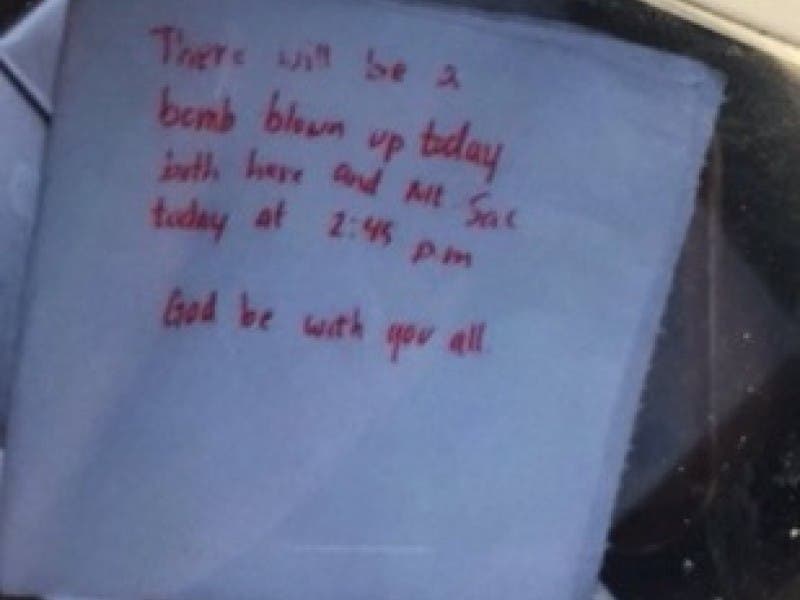 There will be a
bomb blown up today
both here and Mt Sac
today at 2:45 p.m
God be with you all.